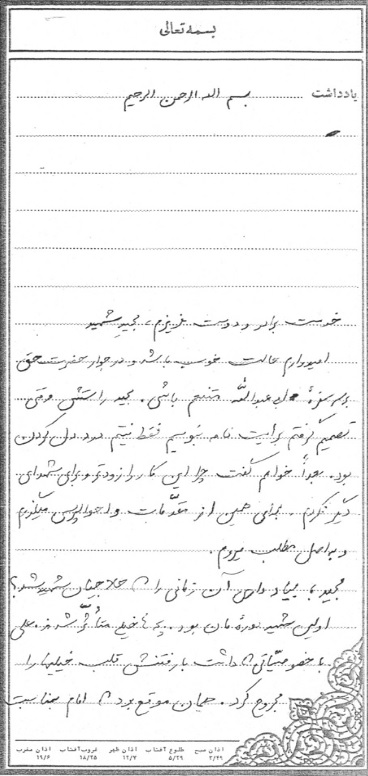 بسمه تعالی
یادداشت
بسم الله الرحمن الرحیم
خدمت برادر و دوست عزیزم، مجید شهید
امیدوارم حالت خوب باشد و در جوار حضرت حق
بر سر سفرهٔ اباعبدالله متنعم باشی. مجید راستش وقتی
تصمیم گرفتم برایت نامه بنویسم فقط نیتم درد دل کردن
بود. بعداً خواهم گفت چرا این کار را زودتر و برای شهدای
دیگر نکردم. برای همین از مقدمات و احوالپرسی میگذرم
و به اصل مطلب میروم.
مجید، بیاد داری آن زمانی را که حلاجیان شهید شد؟
اولین شهید دورهٔ مان بود. بچه ها خیلی متأثر شدند. علی
با خصوصیاتی که داشت با رفتنش قلب خیلیها را
مجروح کرد. همان موقع بود که امام بمناسبت
اذان صبح طلوع آفتاب اذان ظهر غروب آفتاب اذان مغرب
۱۹/۶ ۱۸/۴۵ ۱۲/۷ ۵/۲۹